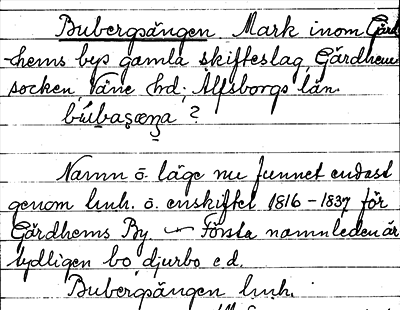 Bubergsängen Mark inom Gärd
-hems bys gamla skifteslag, Gärdhems
socken, Väne hd, Älfsborgs län.
búbasæŋa ?
Namn o. läge nu funnet endast
genom lmh. o. enskiftet 1816-1837 för
Gärdhems By. — Första namnleden är
tydligen bo, djurbo e.d.
Bubergsängen lmh.